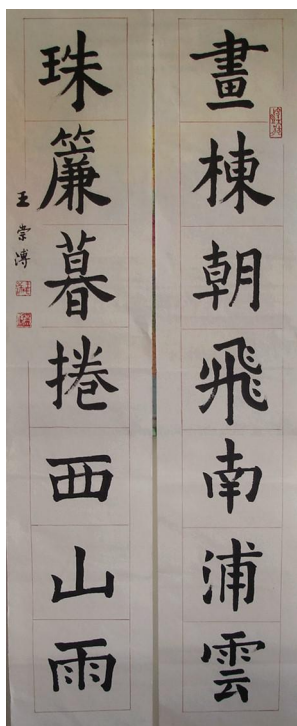 畫棟朝飛南浦雲
珠簾暮捲西山雨
王崇溥